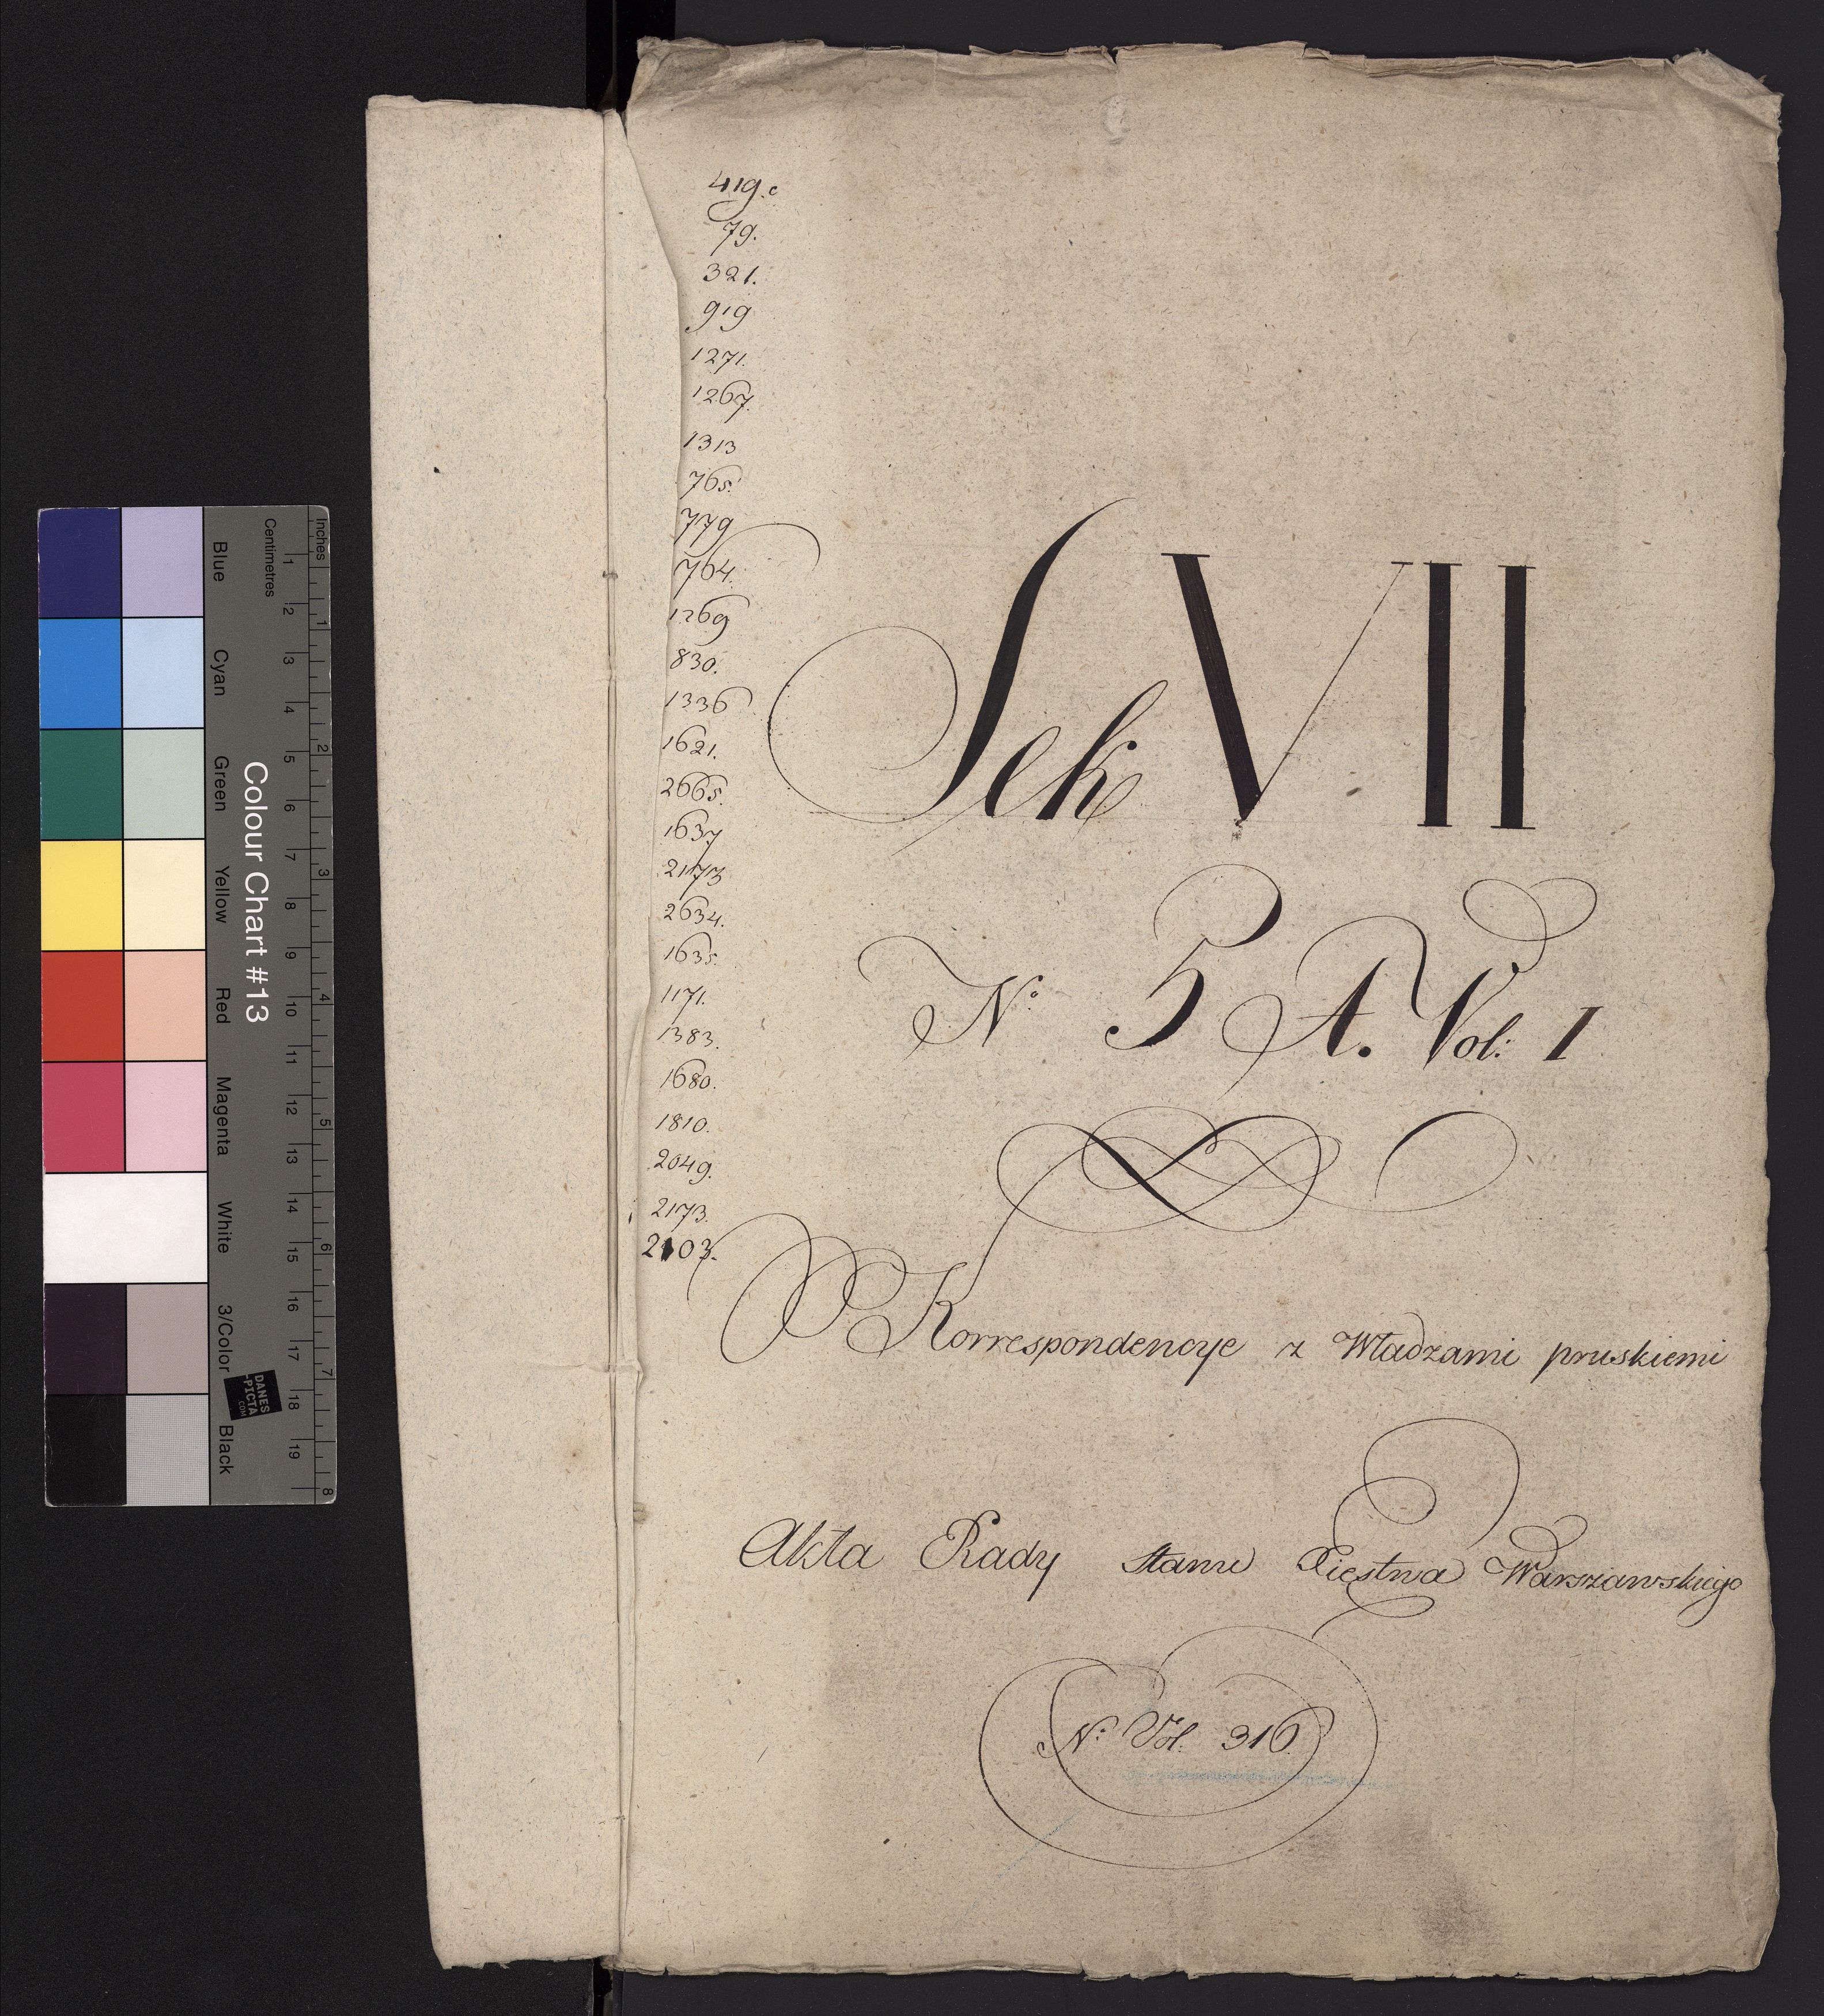 419.c
79.
321.
919
1271.
1267.
1313
765.
779
764.
1269
830.
1336
1621.
2665.
1637
2173
2634.
1635.
1171.
1383.
1680.
1810.
2049.
2173.
2103.
Sek VII
No 5 A. Vol: I
Korrespondencye z Władzami pruskiemi
Akta Rady Stanu Xięstwa Warszawskiego
N: Vol. 316.
Inches
Centimetres
1 2 3 4 5 6 7 8
1 2 3 4 5 6 7 8 9 10 11 12 13 14 15 16 17 18 19
Colour Chart #13
Blue Cyan Green Yellow Red Magenta White 3/Color Black
DANES
-PICTA
.COM